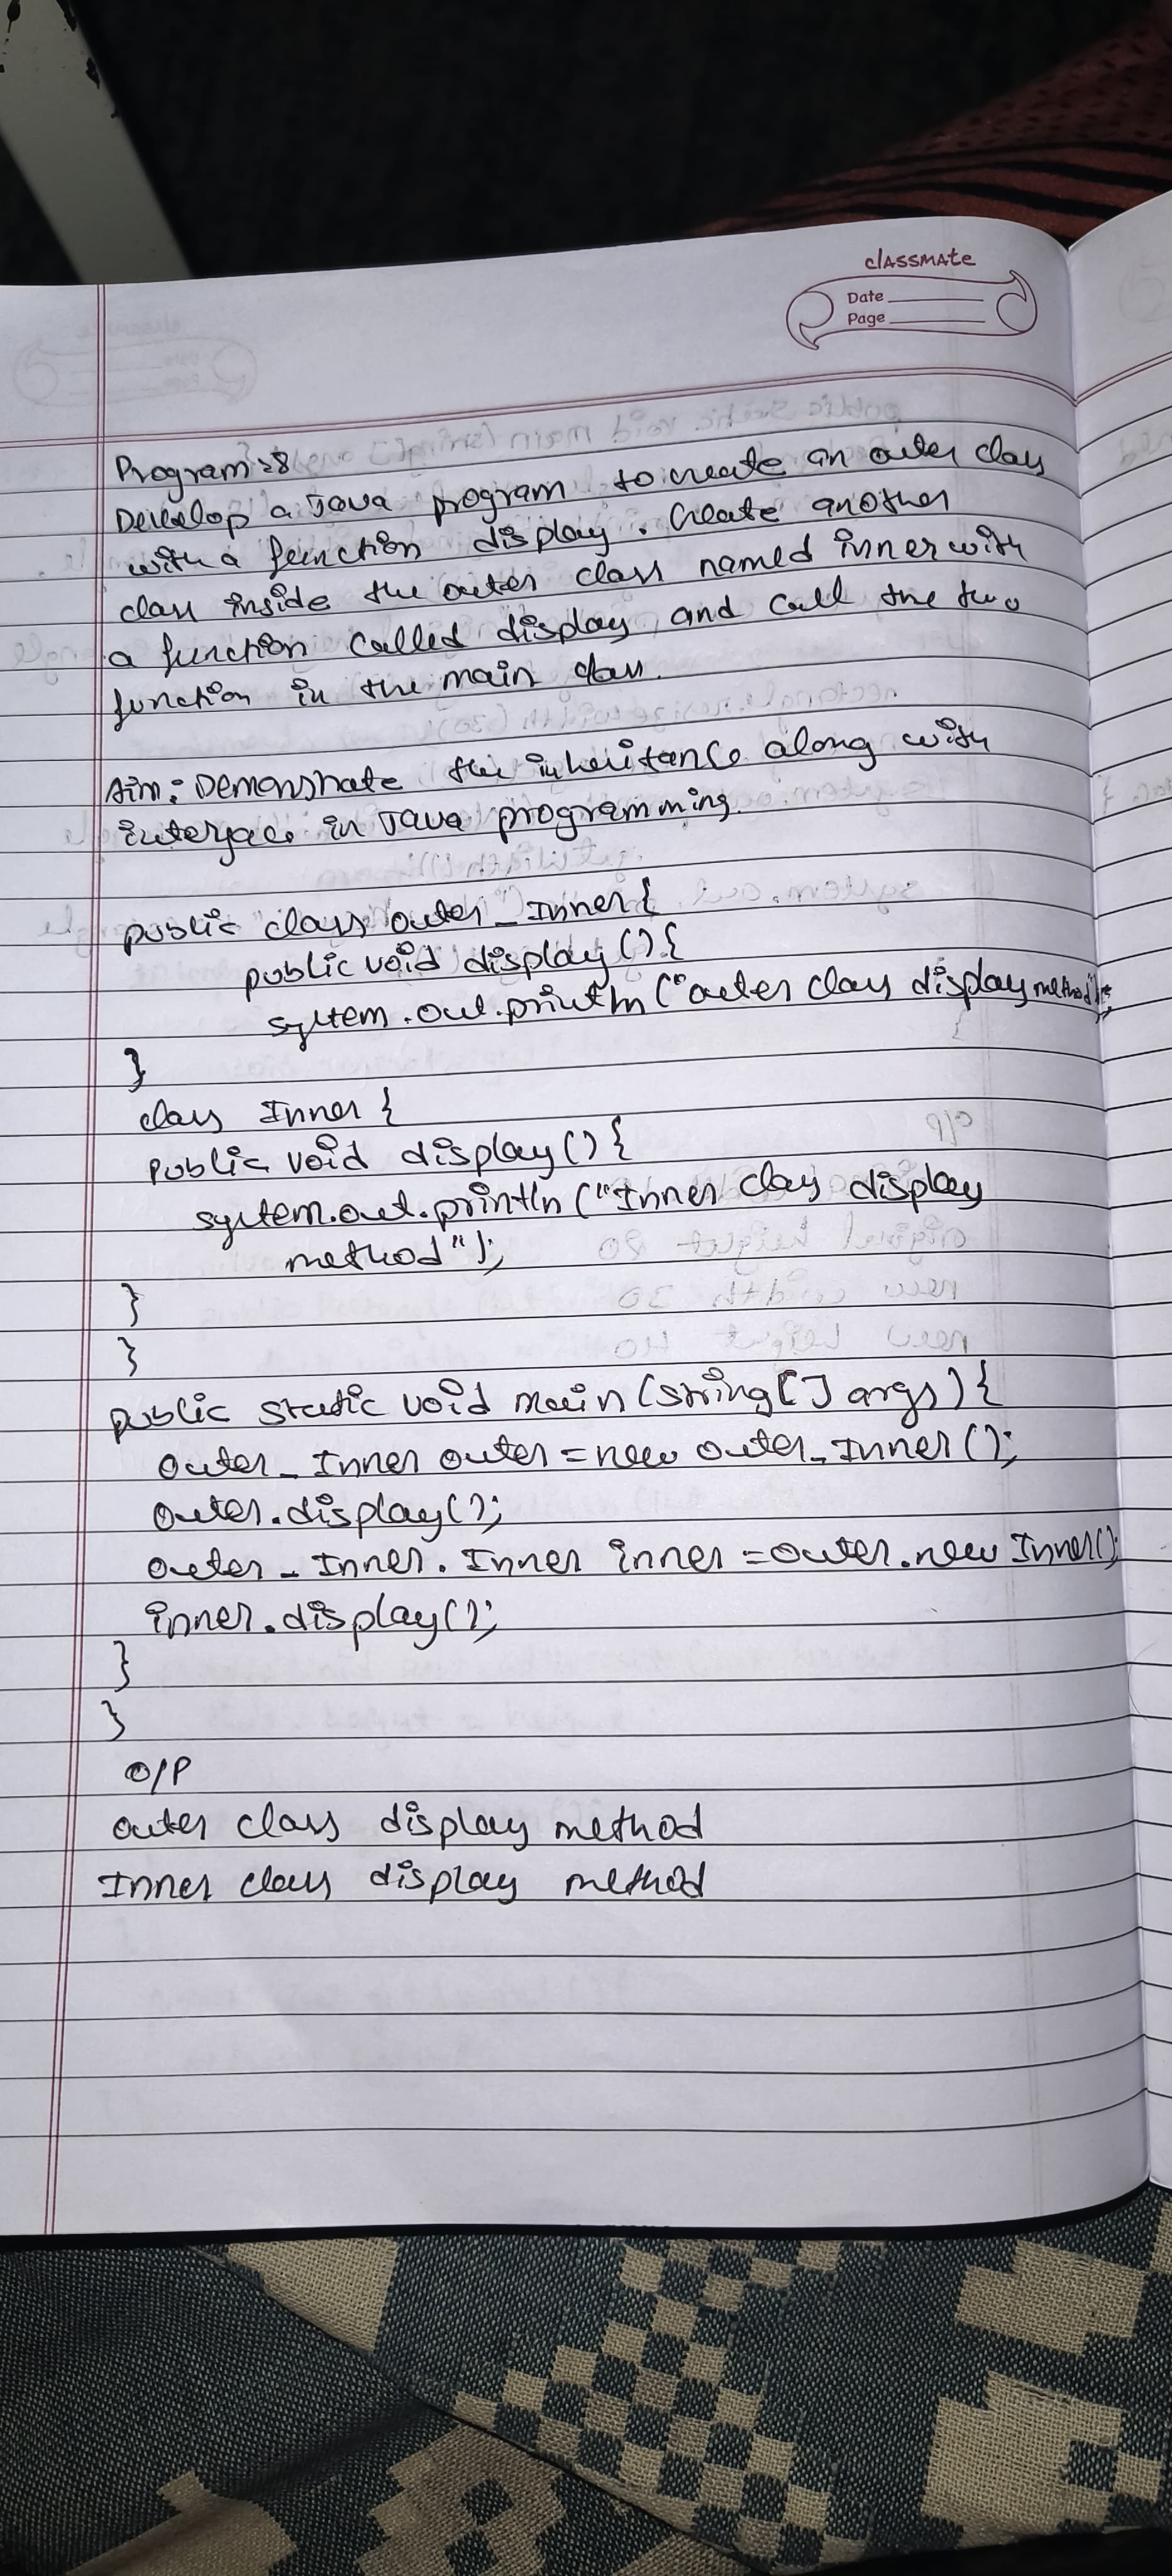 classmate
Date
Page
Program:8
Develop a Java program to create an outer class
with a function display. Create another
class inside the outer class named inner with
a function called display and call the two
function in the main class.
Aim: Demonstrate the inheritance along with
interface in Java programming.
public class outer_Inner {
public void display () {
system.out.println ("outer class display method");
}
class Inner {
public void display () {
system.out.println ("Inner class display
method");
}
}
public static void main (string [] args) {
outer_Inner outer = new outer_Inner ();
outer.display();
outer_Inner. Inner inner = outer.new Inner();
inner.display();
}
}
O/P
outer class display method
Inner class display method